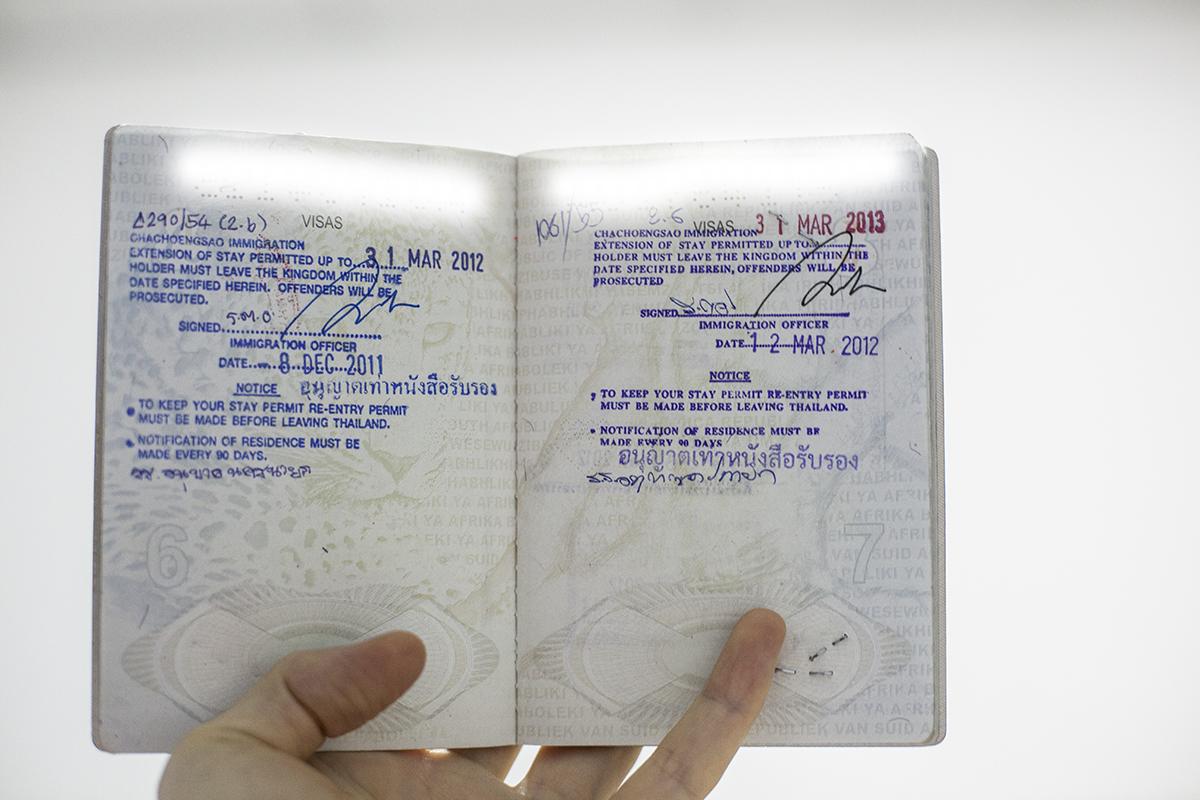 Δ290/54 (2.6) VISAS
CHACHOENGSAO IMMIGRATION
EXTENSION OF STAY PERMITTED UP TO...31 MAR 2012
HOLDER MUST LEAVE THE KINGDOM WITHIN THE
DATE SPECIFIED HEREIN. OFFENDERS WILL BE
PROSECUTED.
SIGNED
IMMIGRATION OFFICER
DATE....8 DEC 2011
NOTICE อนุญาตเท่าหนังสือรับรอง
• TO KEEP YOUR STAY PERMIT RE-ENTRY PERMIT
MUST BE MADE BEFORE LEAVING THAILAND.
• NOTIFICATION OF RESIDENCE MUST BE
MADE EVERY 90 DAYS.
6
1061/55 2.6 VISAS 31 MAR 2013
CHACHOENGSAO IMMIGRATION
EXTENSION OF STAY PERMITTED UP TO
HOLDER MUST LEAVE THE KINGDOM WITHIN THE
DATE SPECIFIED HEREIN, OFFENDERS WILL BE
PROSECUTED
SIGNED
IMMIGRATION OFFICER
DATE..12 MAR 2012
NOTICE
TO KEEP YOUR STAY PERMIT RE-ENTRY PERMIT
MUST BE MADE BEFORE LEAVING THAILAND.
• NOTIFICATION OF RESIDENCE MUST BE
MADE EVERY 90 DAYS
อนุญาตเท่าหนังสือรับรอง
7